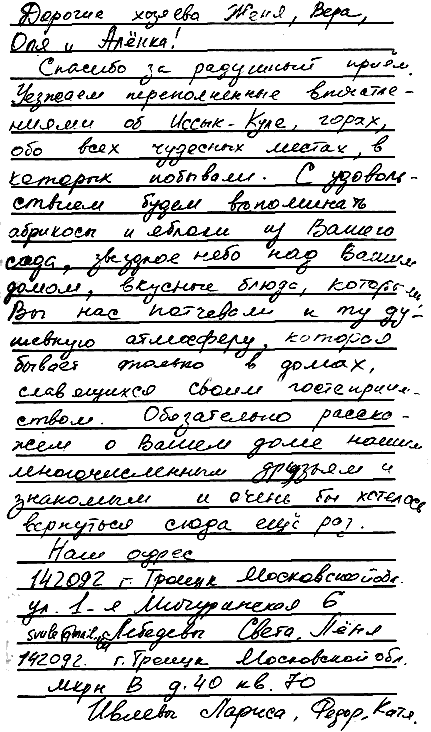 Дорогие хозяева Женя, Вера,
Оля и Алёнка!
Спасибо за радушный приём.
Уезжаем переполненные впечатле-
ниями об Иссык-Куле, горах,
обо всех чудесных местах, в
которых побывали. С удоволь-
ствием будем вспоминать
абрикосы и яблоки из Вашего
сада, звездное небо над Вашим
домом, вкусные блюда, которыми
Вы нас потчевали и ту ду-
шевную атмосферу, которая
бывает только в домах,
славящихся своим гостеприим-
ством. Обязательно расска-
жем о Вашем доме нашим
многочисленным друзьям и
знакомым и очень бы хотелось
вернуться сюда ещё раз.
Наш адрес
142092 г. Троицк Московской обл.
ул. 1-я Мичуринская 6
Лебедевы Света, Лёня
142092. г. Троицк Московской обл.
мкрн В д. 40 кв. 70
Ивлевы Лариса, Федор, Катя.